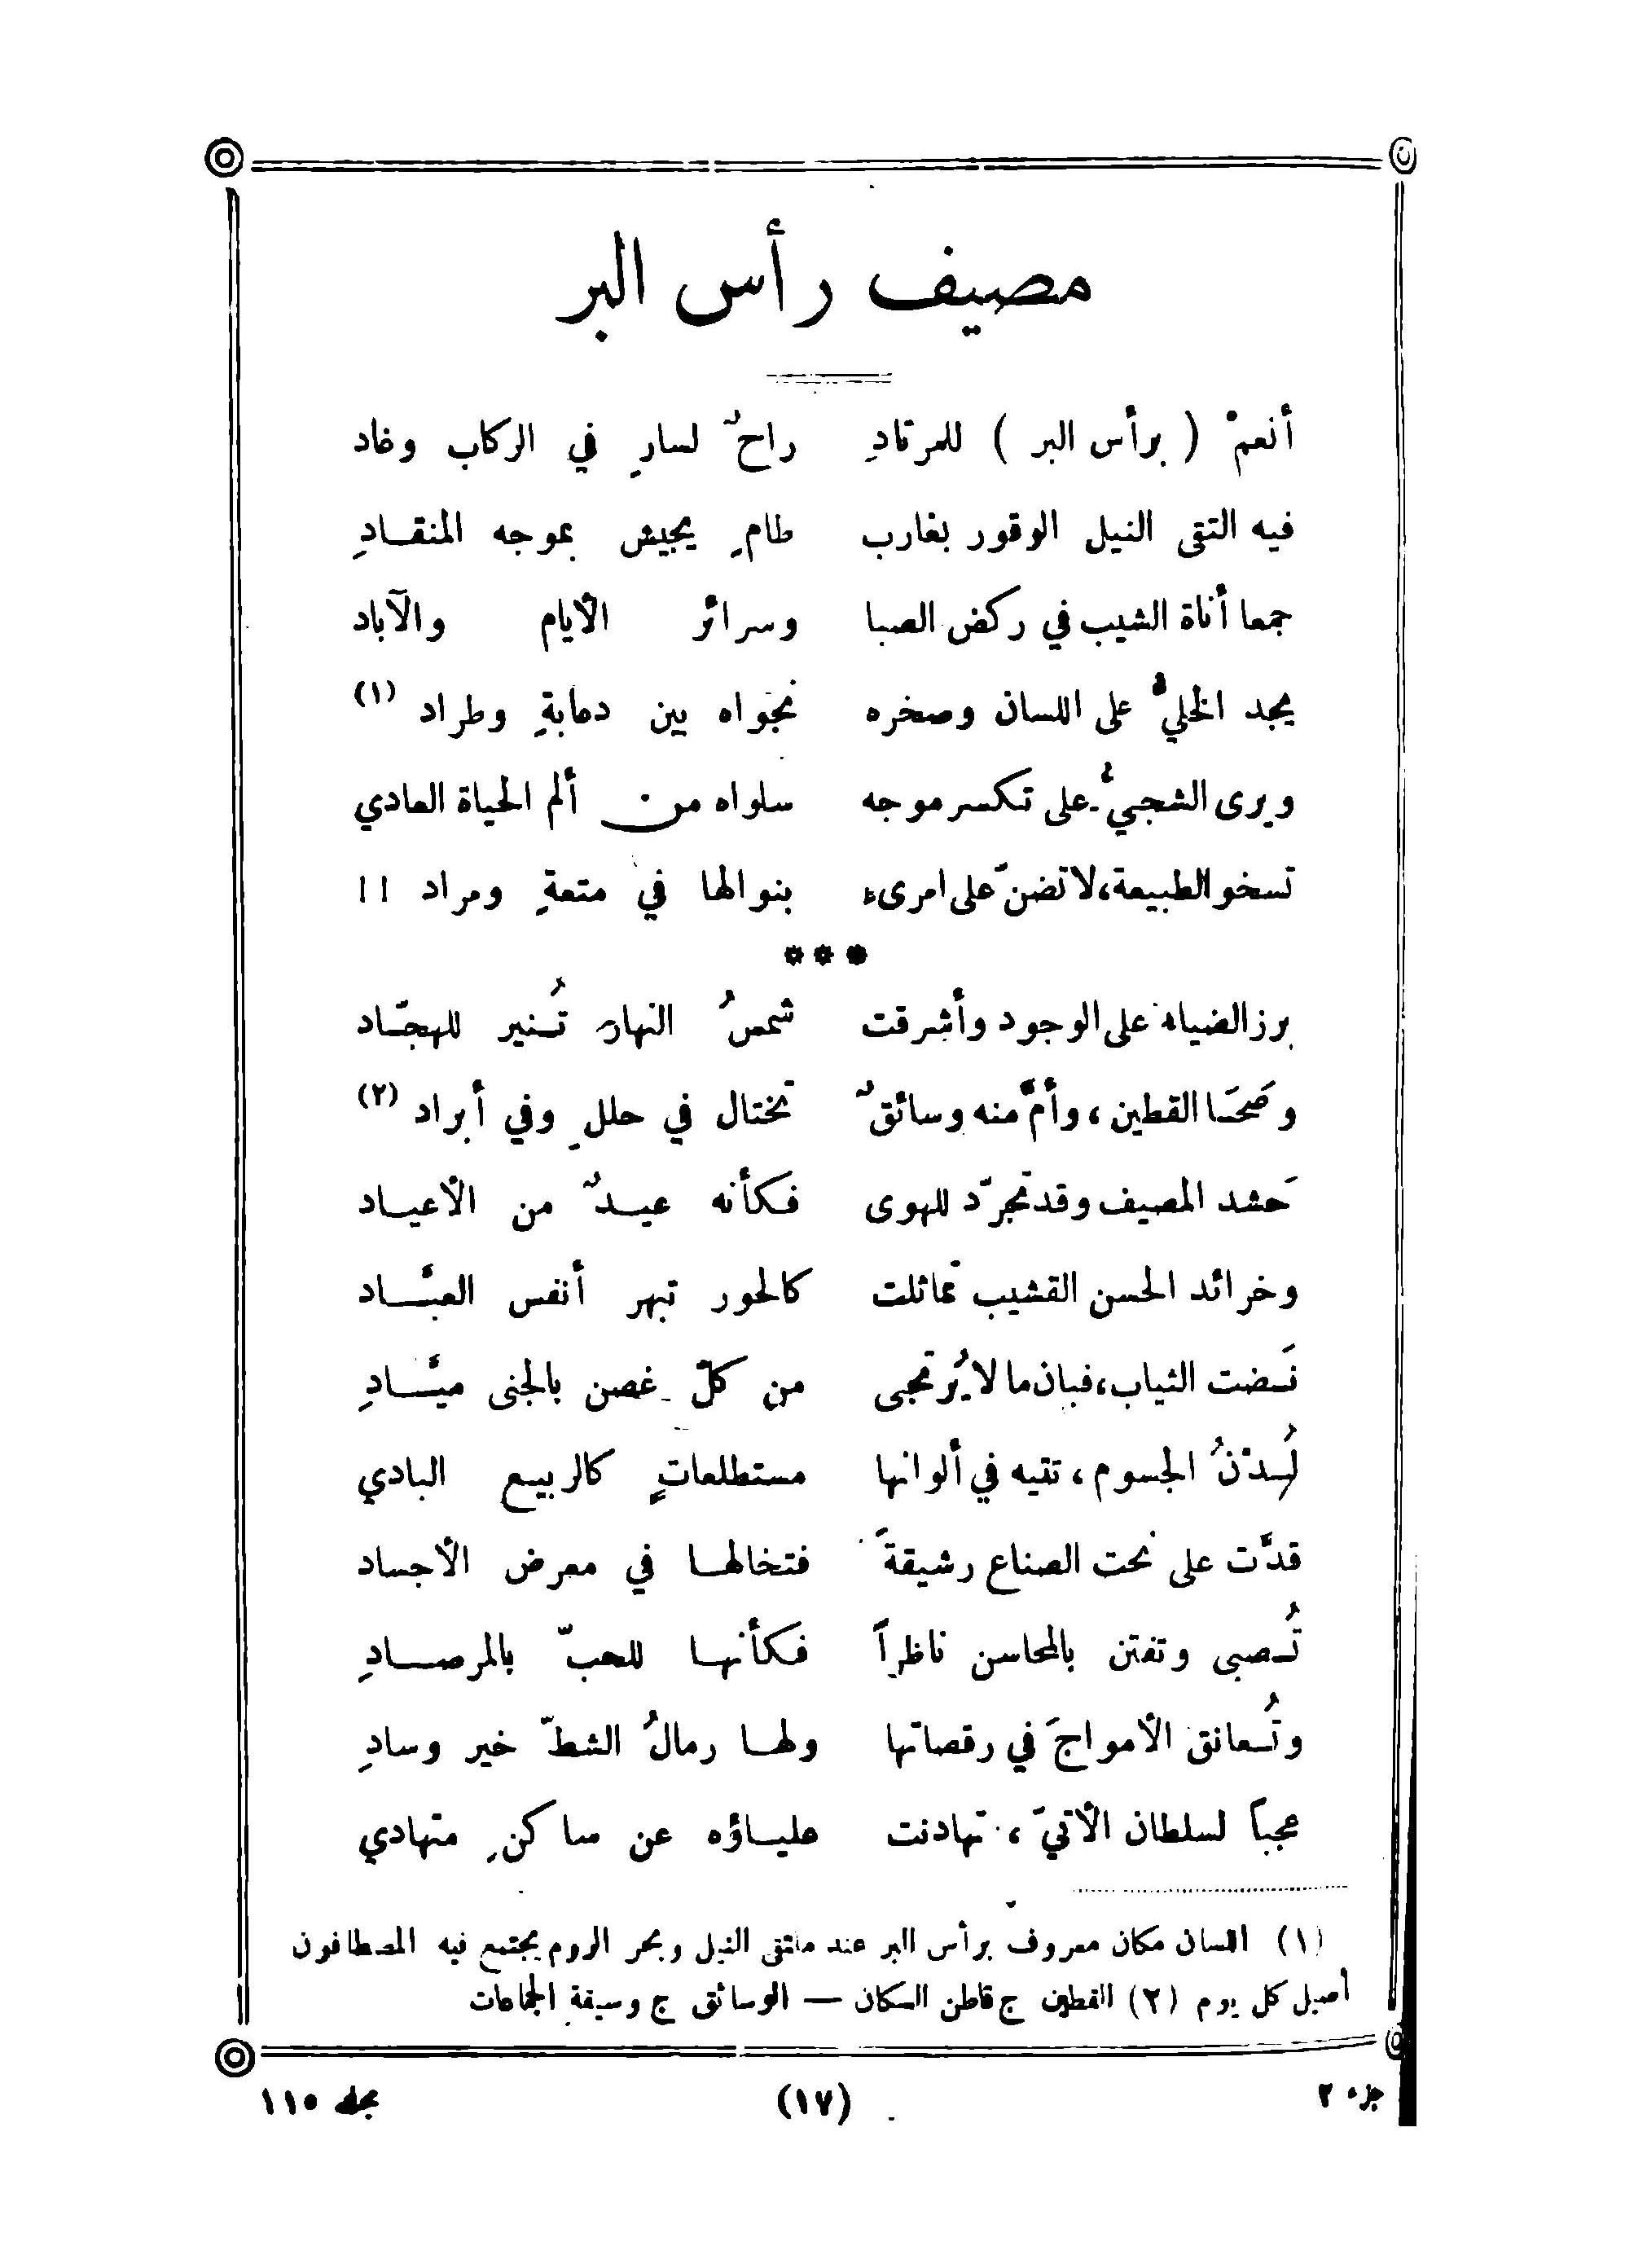 مصيف رأس البر
أنعمْ ( برأس البر ) للمرتادِ راحٌ لسارٍ في الركاب وغاد
فيه التقى النيل الوقور بغارب طامٍ يجيش بموجه المنقـادِ
جمعا أناة الشيب في ركض الصبا وسرائر الأيام والآباد
يجد الخليُّ على اللسان وصخره نجواه بين دعابةٍ وطراد (١)
ويرى الشجيُّ على تكسر موجه سلواه من ألم الحياة العادي
تسخو الطبيعة، لا تضنّ على امرىء بنوالها في متعةٍ ومراد !!
***
برز الضياء على الوجود وأشرقت شمسُ النهار تُـنير للهجّـاد
وَصحَـا القطين، وأمَّ منه وسائقٌ تختال في حللٍ وفي أبراد (٢)
حَشد المصيف وقد تجرّد للهوى فـكأنه عيـدٌ من الأعيـاد
وخرائد الحسن القشيب تماثلت كالحور تبهر أنفس العبَّـاد
نَـضت الثياب، فبان ما لا يُرتجى من كلّ غصن بالجنى ميَّـادِ
لُـدْنُ الجسوم، تتيه في ألوانها مستطلعاتٍ كالربيع البادي
قدَّت على نحت الصناع رشيقةً فتخالهـا في معرض الأجساد
تُـصبى وتفتن بالمحاسن ناظراً فـكأنهـا للحبّ بالمرصـادِ
وتُـعانق الأمواجَ في رقصاتها ولهـا رمالُ الشطّ خير وسادِ
عجباً لسلطان الأتيّ، تهادنت عليـاؤه عن ساكنٍ متهادي
(١) اللسان مكان معروف برأس البر عند ملتقى النيل وبحر الروم يجتمع فيه المصطافون
أصيل كل يوم (٢) القطين ج قاطن السكان — الوسائق ج وسيقة الجماعات
جزء ٢ (١٧) مجلد ١١٥